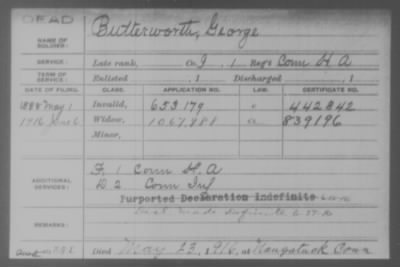 DEAD
NAME OF SOLDIER: Butterworth, George
SERVICE: Late rank, Co. I, 1 Reg't Conn H A
TERM OF SERVICE: Enlisted , 1 Discharged , 1
DATE OF FILING. CLASS. APPLICATION NO. LAW. CERTIFICATE NO.
1888 May 1 Invalid, 653179 442842
1916 June 6 Widow, 1067988 a 839196
Minor,
ADDITIONAL SERVICES: F. 1 Conn H. A
D 2 Conn Inf
Purported Declaration Indefinite
made definite
REMARKS:
Died May 23, 1916, at Naugatuck Conn